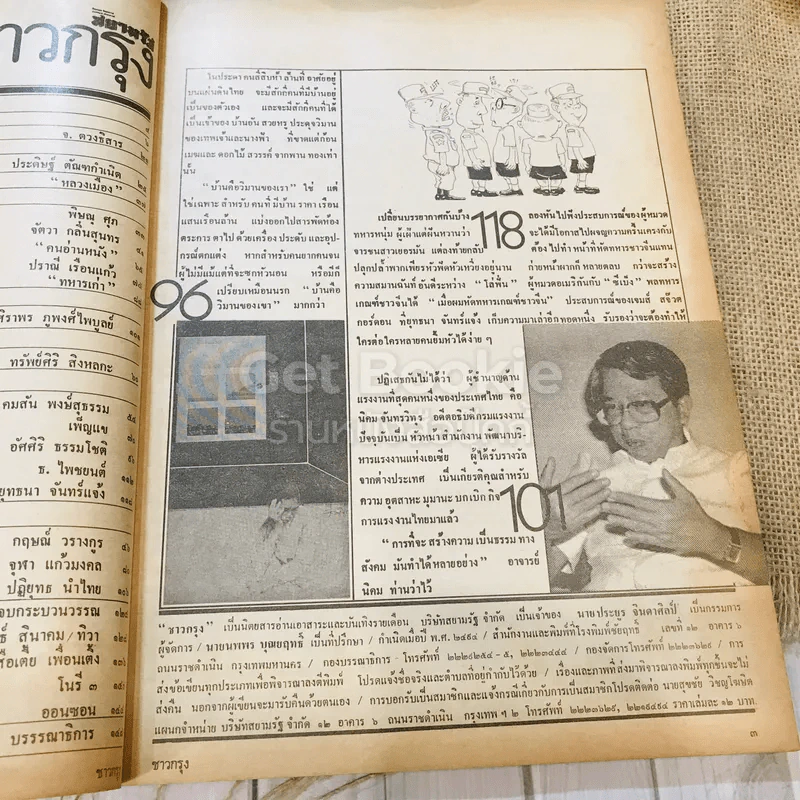 สยามรัฐ
าวกรุง
จ. ตวงธิสาร
ประดิษฐ์ ตัณฑกำเนิด
"หลวงเมือง"
พิษณุ ศุภ
จัตวา กลิ่นสุนทร
"คนอ่านหนัง"
ปราณี เรือนแก้ว
"ทหารเก่า"
ศิราพร ภูพงศ์ไพบูลย์
ทรัพย์ศิริ สิงหลกะ
คมสัน พงษ์สุธรรม
เพ็ญแข
อัศศิริ ธรรมโชติ
ธ. ไพชยนต์
ยุทธนา จันทร์แจ้ง
กฤษณ์ วรางกูร
จุฬา แก้วมงคล
ปฏิยุทธ นำไทย
จบกระบวนวรรณ
สีนาคม/ทิวา
เพื่อนเต้ง
โนรี ๓
ออนซอน
บรรรณาธิการ
ชาวกรุง
ในประดา คนสี่สิบห้า ล้านที่ อาศัยอยู่
บนแผ่นดินไทย จะมีสักกี่คนที่มีบ้านอยู่
เป็นของตัวเอง และจะมีสักกี่คนที่ได้
เป็นเจ้าของ บ้านอัน สวยหรู ประดุจวิมาน
ของเทพเจ้าและนางฟ้า ที่ขาดแต่ก้อน
เมฆและ ดอกไม้ สวรรค์ จากพาน ทองเท่า
นั้น
"บ้านคือวิมานของเรา" ใช่ แต่
ใช่เฉพาะ สำหรับ คนที่ มีบ้าน ราคา เรือน
แสนเรือนล้าน แบ่งออกไปสารพัดห้อง
ตระการ ตาไป ด้วยเครื่อง ประดับ และอุป-
กรณ์ตกแต่ง หากสำหรับคนยากคนจน
ผู้ไม่มีแม้แต่ที่จะซุกหัวนอน หรือมีก็
เปรียบเหมือนนรก "บ้านคือ
วิมานของเขา" มากกว่า
96
เปลี่ยนบรรยากาศกันบ้าง
ทหารหนุ่ม ผู้เฝ้าแต่ฝันหวานว่า
จารชนสาวเยอรมัน แต่ลงท้ายกลับ
118
ลองหันไปฟังประสบการณ์ของผู้หมวด
จะได้มีโอกาสไปผจญความครื้นเครงกับ
ต้อง ไปทำ หน้าที่หัดทหารชาวจีนแทน
ปลุกปล้ำพากเพียรหัวพัดหัวเหวี่ยงอยู่นาน ก่ายหน้าผากก็ หลายตลบ กว่าจะสร้าง
ความสมานฉันท์ อันดีระหว่าง "โล้ฟื้น" ผู้หมวดอเมริกันกับ "ซีเบ็ง" พลทหาร
เกณฑ์ชาวจีนได้ "เมื่อผมหัดทหารเกณฑ์ชาวจีน" ประสบการณ์ของเจมส์ สจ๊วต
กอร์ดอน ที่ยุทธนา จันทร์แจ้ง เก็บความมาเล่าอีกทอดหนึ่ง รับรองว่าจะต้องทำให้
ใครต่อใครหลายคนยิ้มหัวได้ง่าย ๆ
ปฏิเสธกันไม่ได้ว่า ผู้ชำนาญด้าน
แรงงานที่สุดคนหนึ่งของประเทศไทย คือ
นิคม จันทรวิทุร อดีตอธิบดีกรมแรงงาน
ปัจจุบันเป็น หัวหน้า สำนักงาน พัฒนาบริ-
หารแรงงานแห่งเอเซีย ผู้ได้รับรางวัล
จากต่างประเทศ เป็นเกียรติคุณสำหรับ
ความ อุตสาหะ มุมานะ บุกเบิก กิจ
การแรงงานไทยมาแล้ว
101
"การที่จะ สร้างความ เป็นธรรม ทาง
สังคม มันทำได้หลายอย่าง" อาจารย์
นิคม ท่านว่าไว้
Get Bookie
"ชาวกรุง" เป็นนิตยสารอ่านเอาสาระและบันเทิงรายเดือน บริษัทสยามรัฐ จำกัด เป็นเจ้าของ นายประยูร จินดาศิลป์ เป็นกรรมการ
ผู้จัดการ / นายนพพร บุณยฤทธิ์ เป็นที่ปรึกษา / กำเนิดเมื่อปี พ.ศ. ๒๔๙๔ / สำนักงานและพิมพ์ที่โรงพิมพ์ชัยฤทธิ์ เลขที่ ๑๒ อาคาร ๖
ถนนราชดำเนิน กรุงเทพมหานคร / กองบรรณาธิการ - โทรศัพท์ ๒๒๘๒๕๔ - ๕, ๒๒๓๔๔๔ / กองจัดการโทรศัพท์ ๒๒๒๓๖๒๙ / การ
ส่งข้อเขียนทุกประเภทเพื่อพิจารณาลงตีพิมพ์ โปรดแจ้งชื่อจริงและตำบลที่อยู่กำกับไว้ด้วย / เรื่องและภาพที่ส่งมาพิจารณาลงพิมพ์ทุกชิ้นจะไม่
ส่งคืน นอกจากผู้เขียนจะมารับคืนด้วยตนเอง / การบอกรับเป็นสมาชิกและแจ้งกรณีเกี่ยวกับการเป็นสมาชิกโปรดติดต่อ นายสุขชัย วิชญโฆษิต
แผนกจำหน่าย บริษัทสยามรัฐ จำกัด ๑๒ อาคาร ๖ ถนนราชดำเนิน กรุงเทพ ฯ ๒ โทรศัพท์ ๒๒๒๓๖๒๙, ๒๒๑๙๔๙๔ ราคาเล่มละ ๑๒ บาท
๓